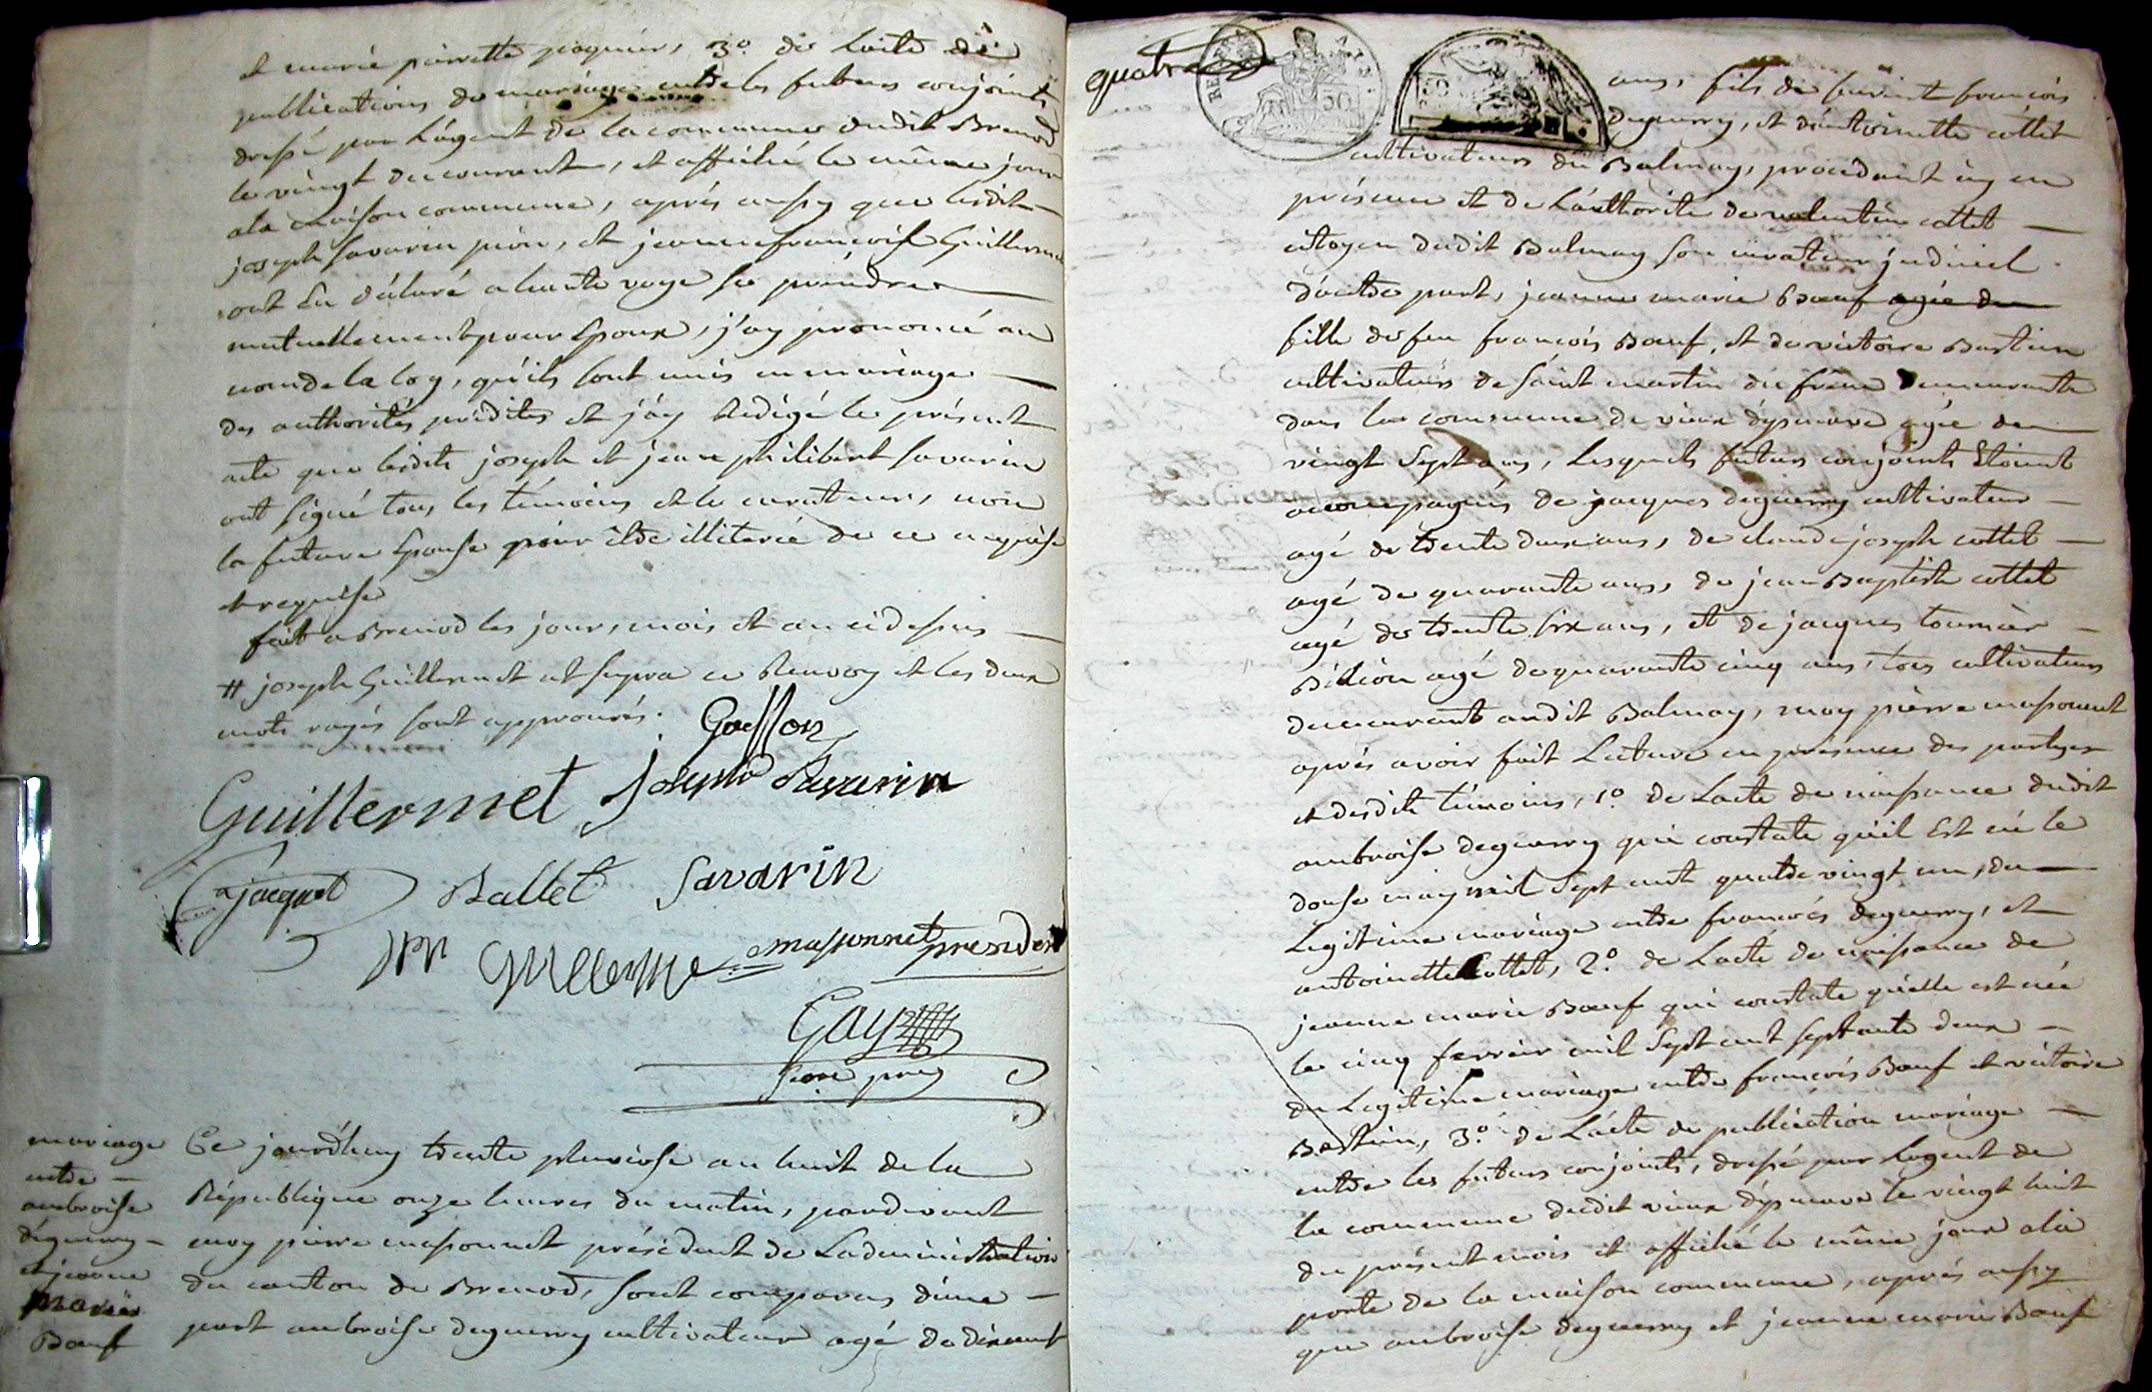 et marie pierrette jacquier, 3.o de Lacte de
publications de mariage entre les futurs conjoints
dressé par L'agent de la commune dudit Brenod
le vingt du courant, et affiché le même jour
a la maison commune, après aussy que lesdits
joseph savarin pion, et jeanne françoise Guillermet
ont Eu déclaré a haute voye se prendre
mutuellement pour Epoux, j'ay prononcé au
nom de la loy, qu'ils sont unis en mariage
des authorités prédites et j'ay Rédigé le présent
acte que lesdits joseph et jean philibert savarin
ont signé tous les témoins et le curateur, non
la future Epouse pour être illiterée de ce enquise
et requise
fait a Brenod les jour, mois et an ci dessus
# joseph Guillermet et supra ce Renvoy et les deux
mots rayés sont approuvés.
Gasson
Guillermet joseph Savarin
ajacquet Ballet Savarin
Guillerme massonnet president
Gay
mariage
entre
ambroise
déguerry
et jeanne
marie
Bœuf
Ce jourd'huy trente pluviose an huit de la
République onze heures du matin, pardevant
moy pierre massonnet président de Ladministration
du canton de Brenod, sont comparus d'une
part ambroise deguerry cultivateur agé de dixneuf
quatre
ans, fils de françois
Deguerry, et d'antoinette collet
cultivateurs du Balmay, procédant icy en
présence et de L'authorité de valentin collet
citoyen dudit Balmay son curateur judiciel
d'autre part, jeanne marie Bœuf agée de
fille de feu françois Bœuf, et de victoire Bastien
cultivateurs de saint martin du frêne Demeurante
dans la commune de vieux d'yzenave agée de
vingt sept ans, Lesquels futurs conjoints Etoient
accompagnés de jacques deguerry cultivateur
agé de trente deux ans, de claude joseph collet
agé de quarante ans, de jean Baptiste collet
agé de trente six ans, et de jacques tournier
Bidion agé de quarante cinq ans, tous cultivateurs
demeurant audit Balmay, moy pierre massonnet
après avoir fait Lecture en présence des partyes
et desdits témoins, 1.o de Lacte de naissance dudit
ambroise deguerry qui constate qu'il Est né le
douse may mil sept cent quatre vingt un, du
Legitime mariage entre françois deguerry, et
antoinette Collet, 2.o de Lacte de naissance de
jeanne marie Bœuf qui constate qu'elle est née
le cinq ferrier mil sept cent septante deux
du Legitime mariage entre françois Bœuf et victoire
Bastien, 3.o de L'acte de publication mariage
entre les futurs conjoints, dressé par Lagent de
la commune dudit vieux d'yzenave le vingt huit
du présent mois et affiché le même jour a la
porte de la maison commune, après aussy
que ambroise deguerry et jeanne marie Bœuf